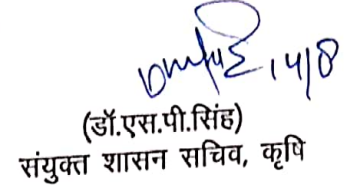 14/8
(डॉ.एस.पी.सिंह)
संयुक्त शासन सचिव, कृषि